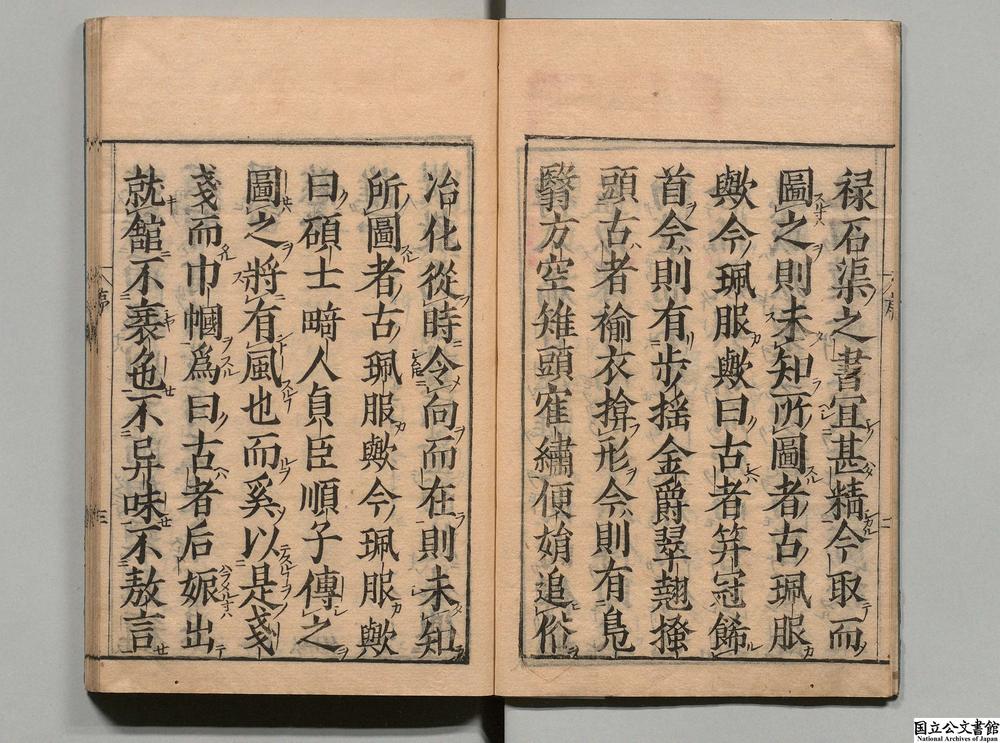 禄石渠之書宜甚精今取而
圖之則未知所圖者古珮服
歟今珮服歟曰古者筓冠餙
首今則有歩摇金爵翠翹搔
頭古者褕衣揜形今則有鳧
翳方空雉頭寉繡便娋追俗
冶化從時令向而在則未知
所圖者古珮服歟今珮服歟
曰碩士畸人貞臣順子傳之
圖之將有風也而奚以是戔
戔而巾幗爲曰古者后娠出
就館不衺色不异味不敖言
国立公文書館
National Archives of Japan